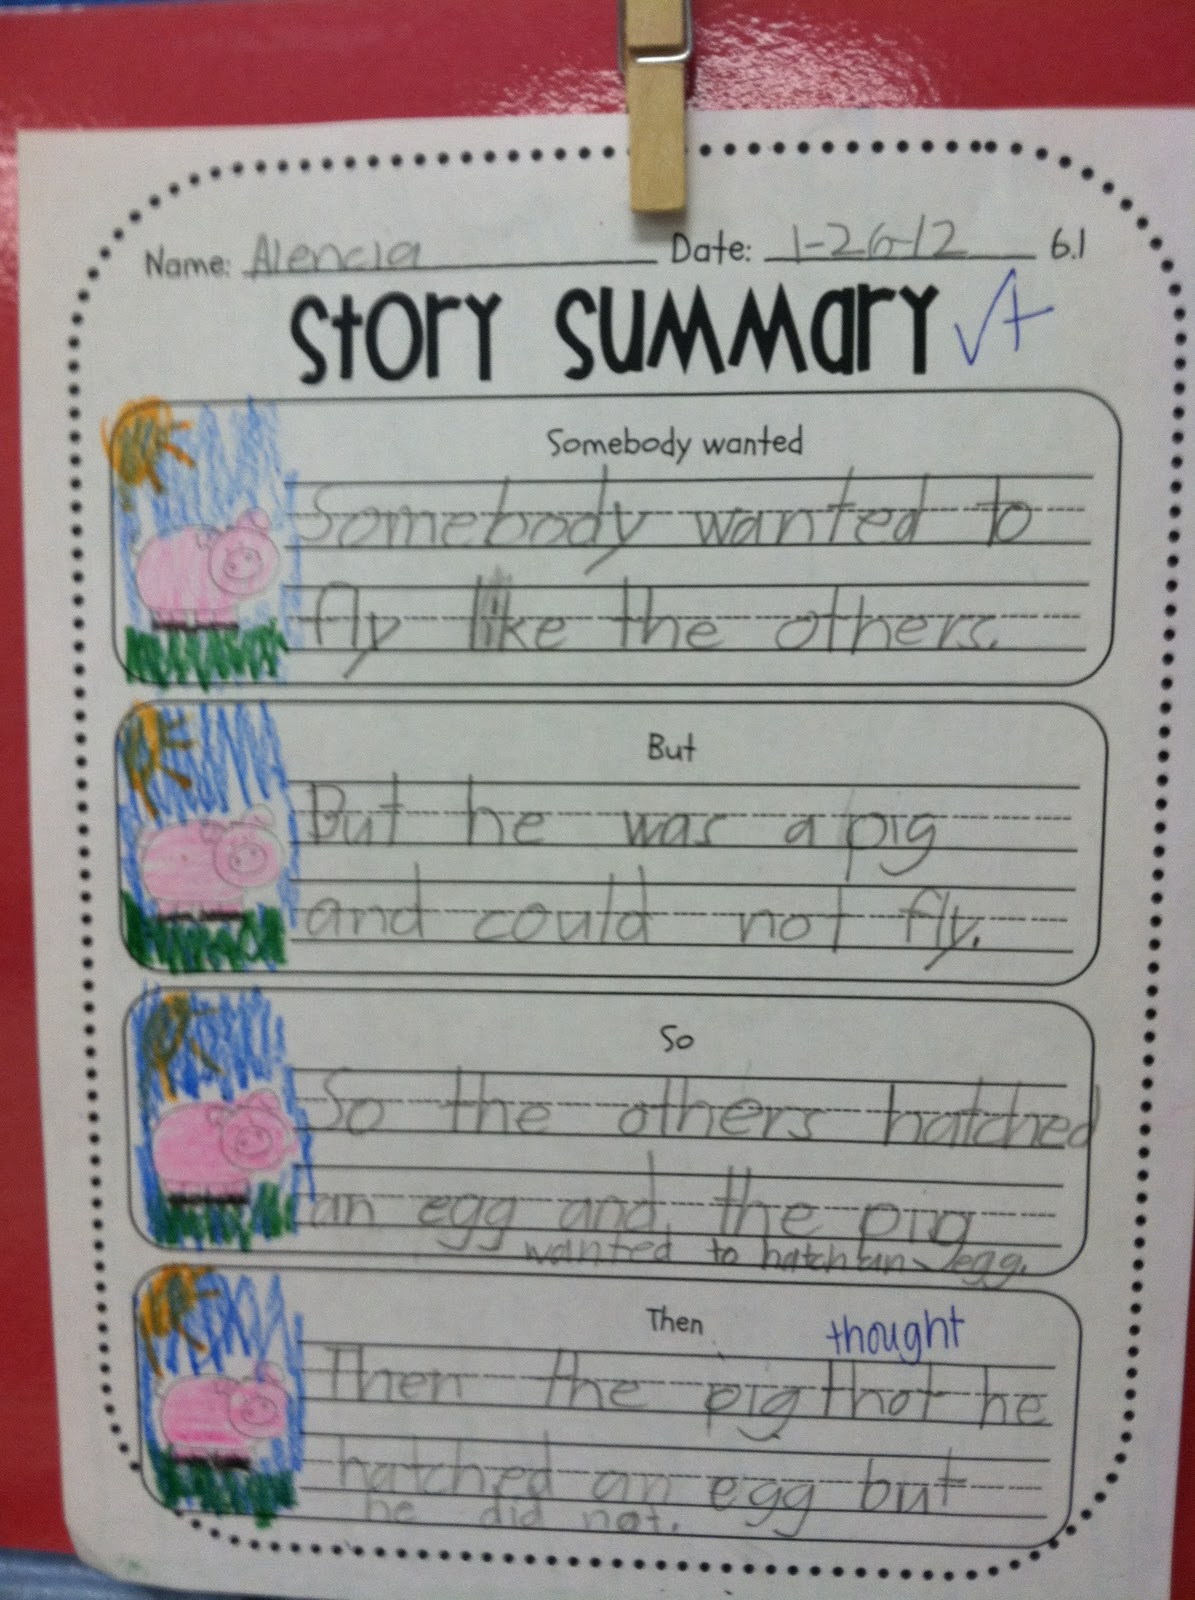 Name: Alencia Date: 1-26-12 6.1
Story Summary √+
Somebody wanted
Somebody wanted to
fly like the others.
But
But he was a pig
and could not fly.
So
So the others hatched
an egg and the pig
wanted to hatch an egg.
Then
thought
Then the pig thot he
hatched an egg but
he did not.